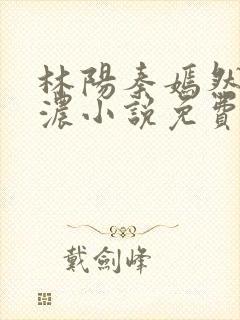 林陽秦嫣然
濃小說免費
戴劍峰